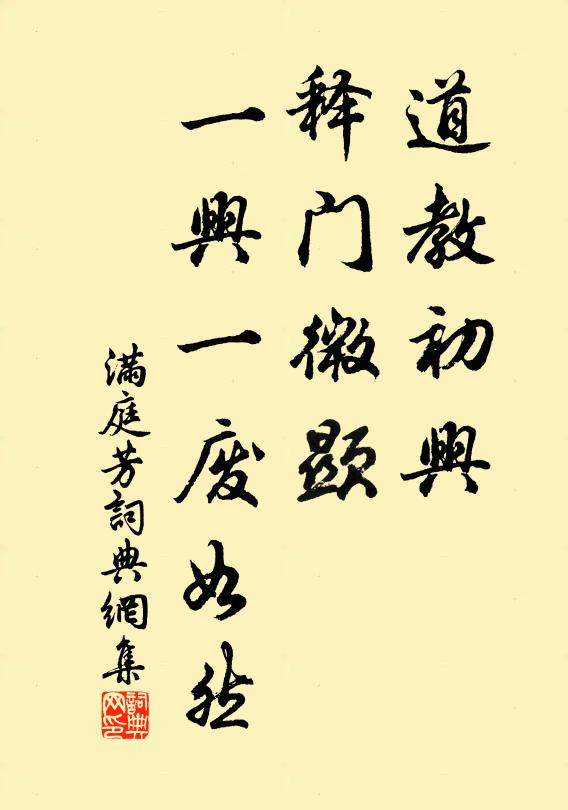 道教初興
释门微顕
一興一废如然
滿庭芳詞典網集
詞典网印